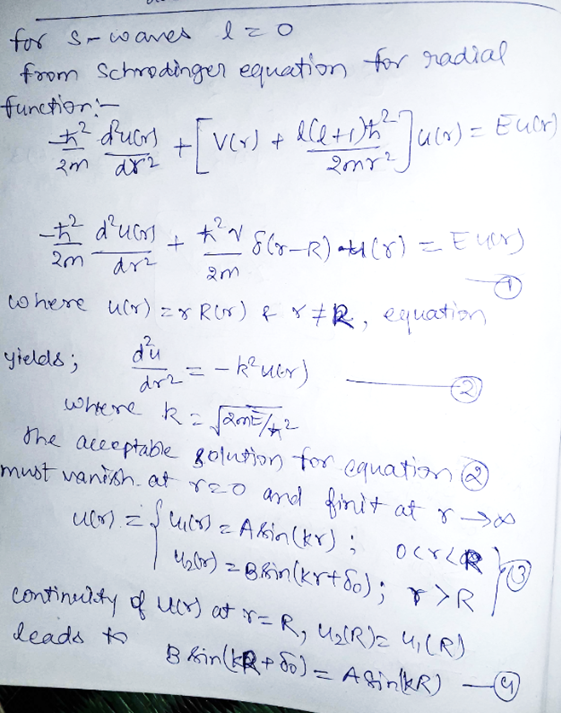 for s-waves l=0
from Schrodinger equation for radial
function:-
-ħ²/2m d²u(r)/dr² + [V(r) + l(l+1)ħ²/2mr²]u(r) = Eu(r)
-ħ²/2m d²u(r)/dr² + ħ²γ/2m δ(r-R) u(r) = Eu(r)
①
where u(r) = rR(r) & r≠R, equation
yields; d²u/dr² = -k²u(r) —②
where k = √2mE/ħ²
the acceptable solution for equation ②
must vanish at r=0 and finit at r→∞
u(r) = { u₁(r) = A sin(kr) ; 0<r<R
u₂(r) = B sin(kr+δ₀) ; r>R } ③
continuity of u(r) at r=R, u₂(R) = u₁(R)
leads to
B sin(kR+δ₀) = A sin(kR) —④